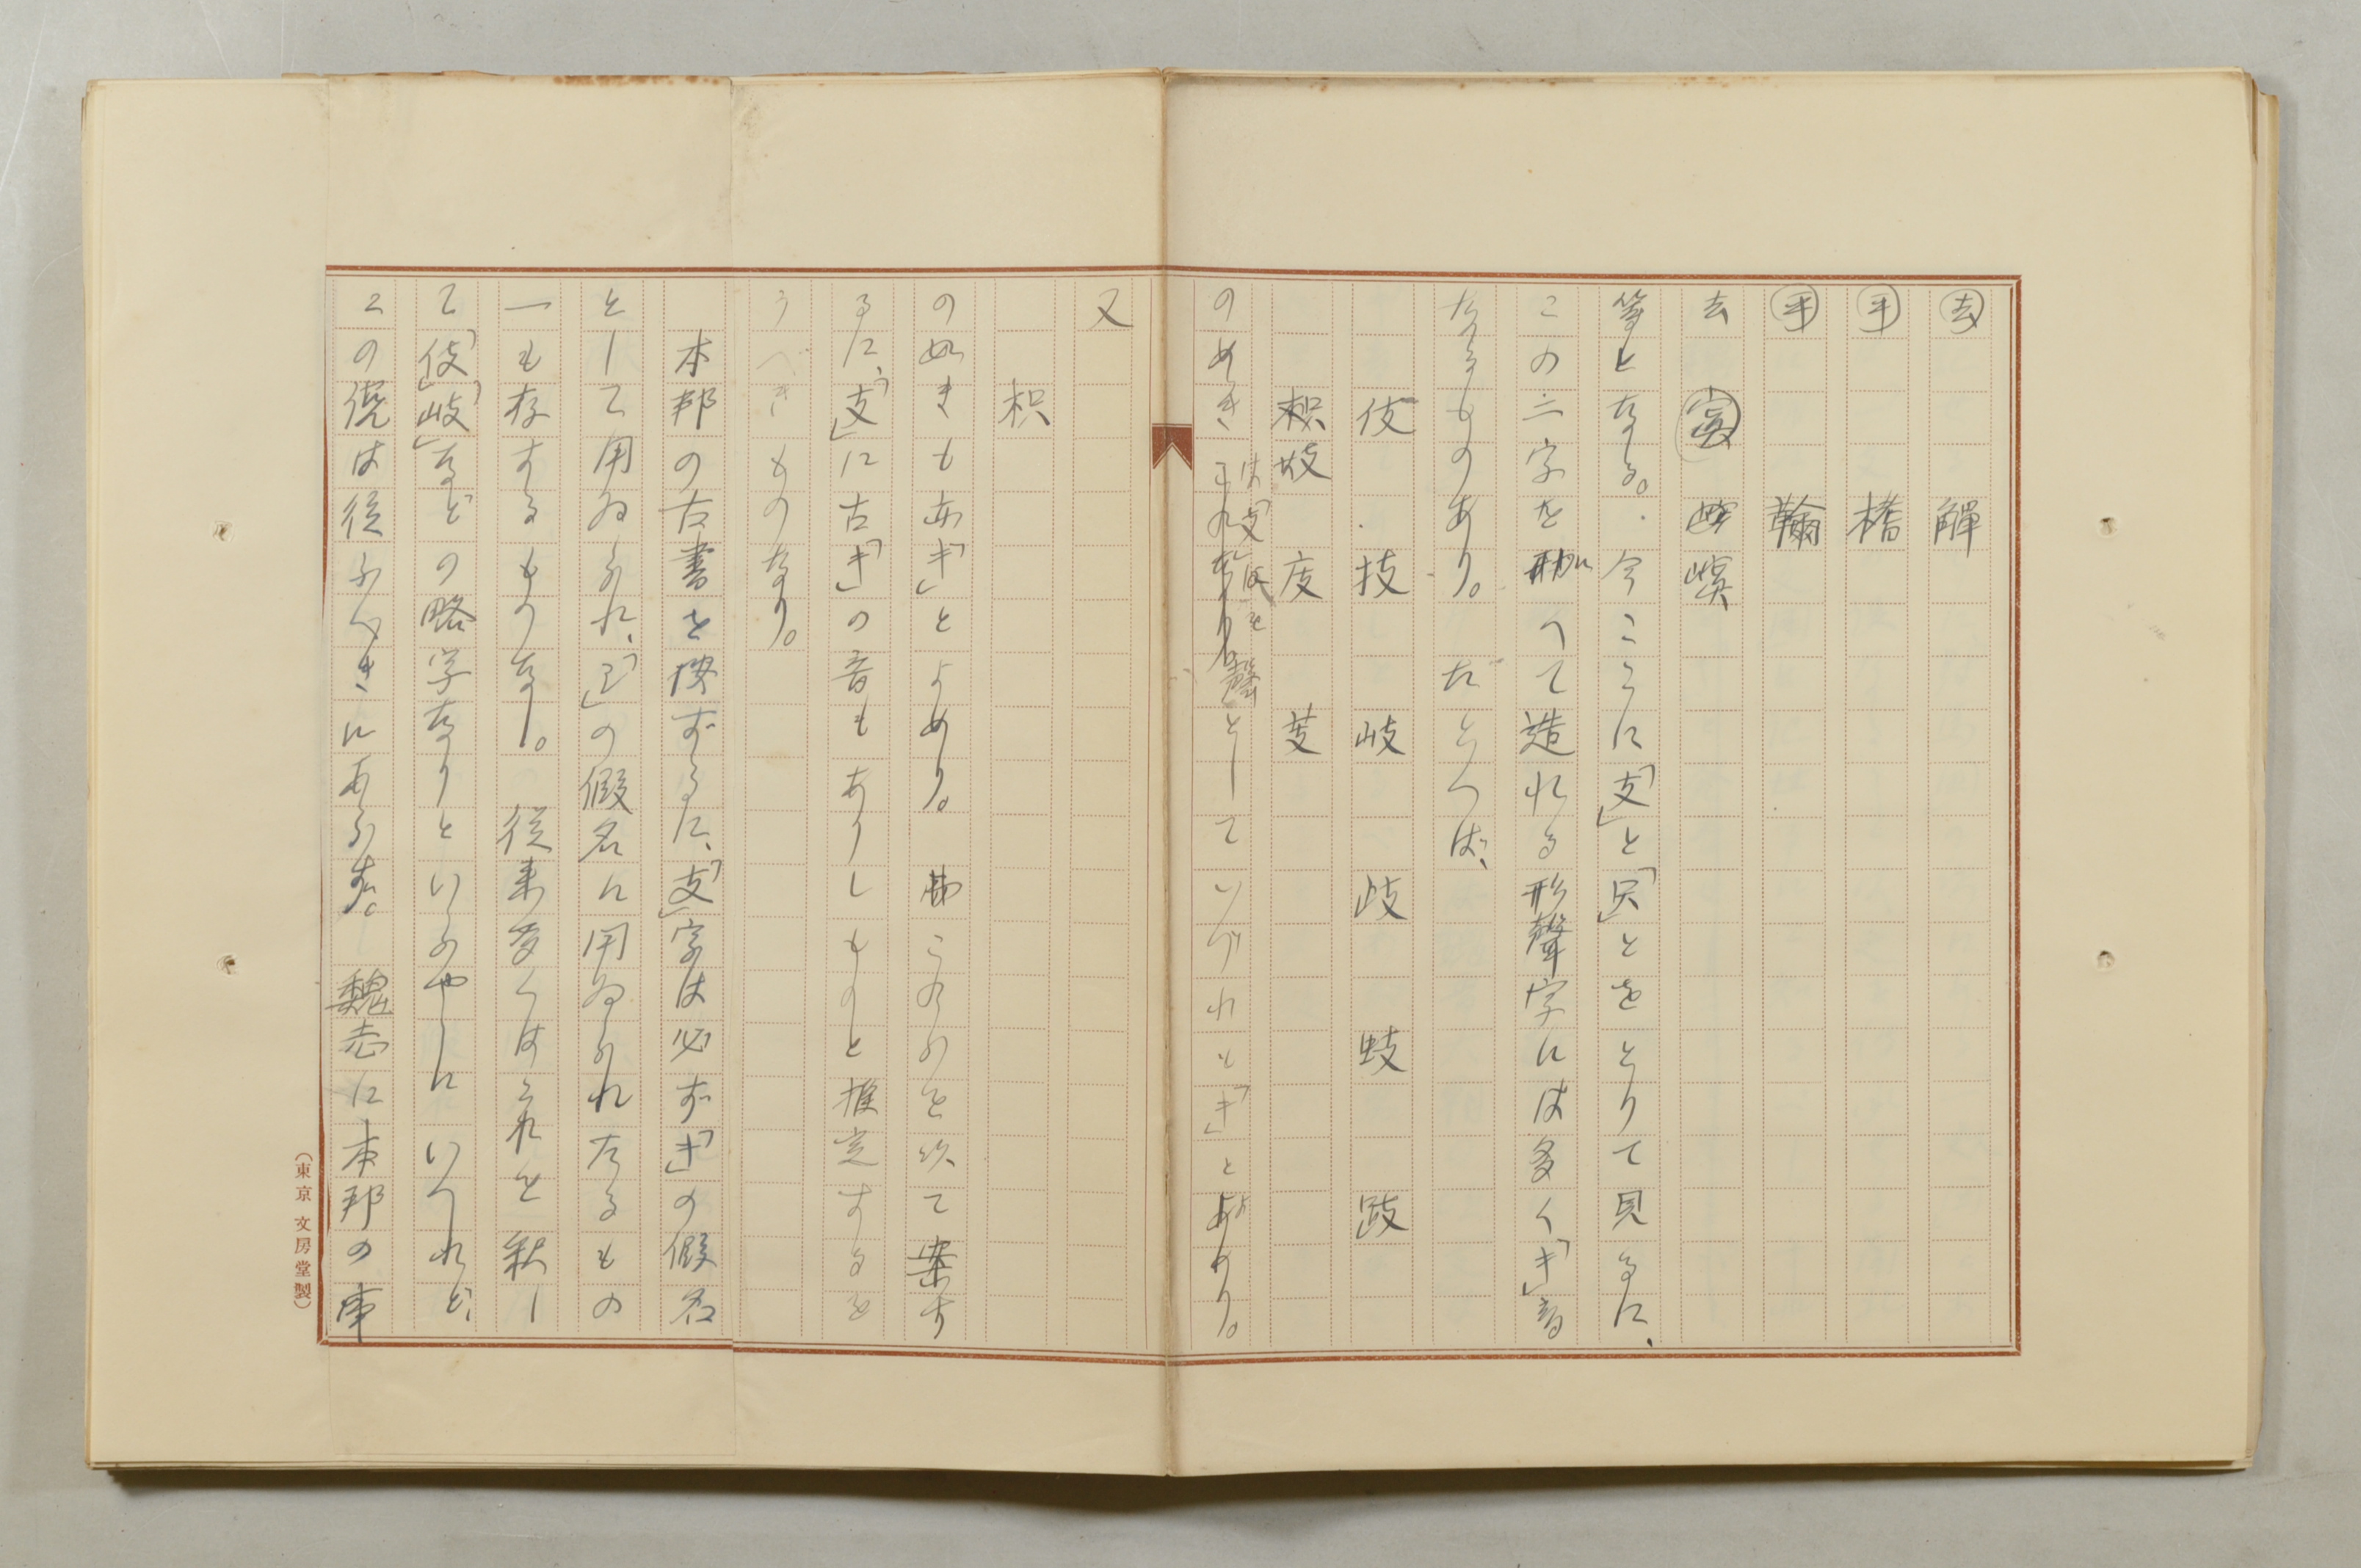 去 觶
平 橋
平 翰
去 寘 嶼
等となる。今こゝに「支」と「只」とをとりて見るに、
この二字を加へて造れる形聲字には多く「ギ」音
なるものあり。だとへば、
伎 技 岐 歧 蚑 跂
枳 妓 庋 芰
のめきは「支」「氏」を聲としていづれも「ギ」とよめり。
又
枳
のぬきも亦「ギ」とよめり。これらを以て案す
るに、「支」に古「ギ」の音もありしものと推定するを
うべきものなり。
本邦の古書を按ずるに、「支」字は必ず「キ」の假名
として用ゐられ、「シ」の假名に用ゐられたるもの
一も存するものなし。従来多くはこれを釈し
て「伎」「岐」などの略字なりといふやうにいへれど、
この説は従ふべきにあらず。魏志に本邦の事
(東京 文房堂製)